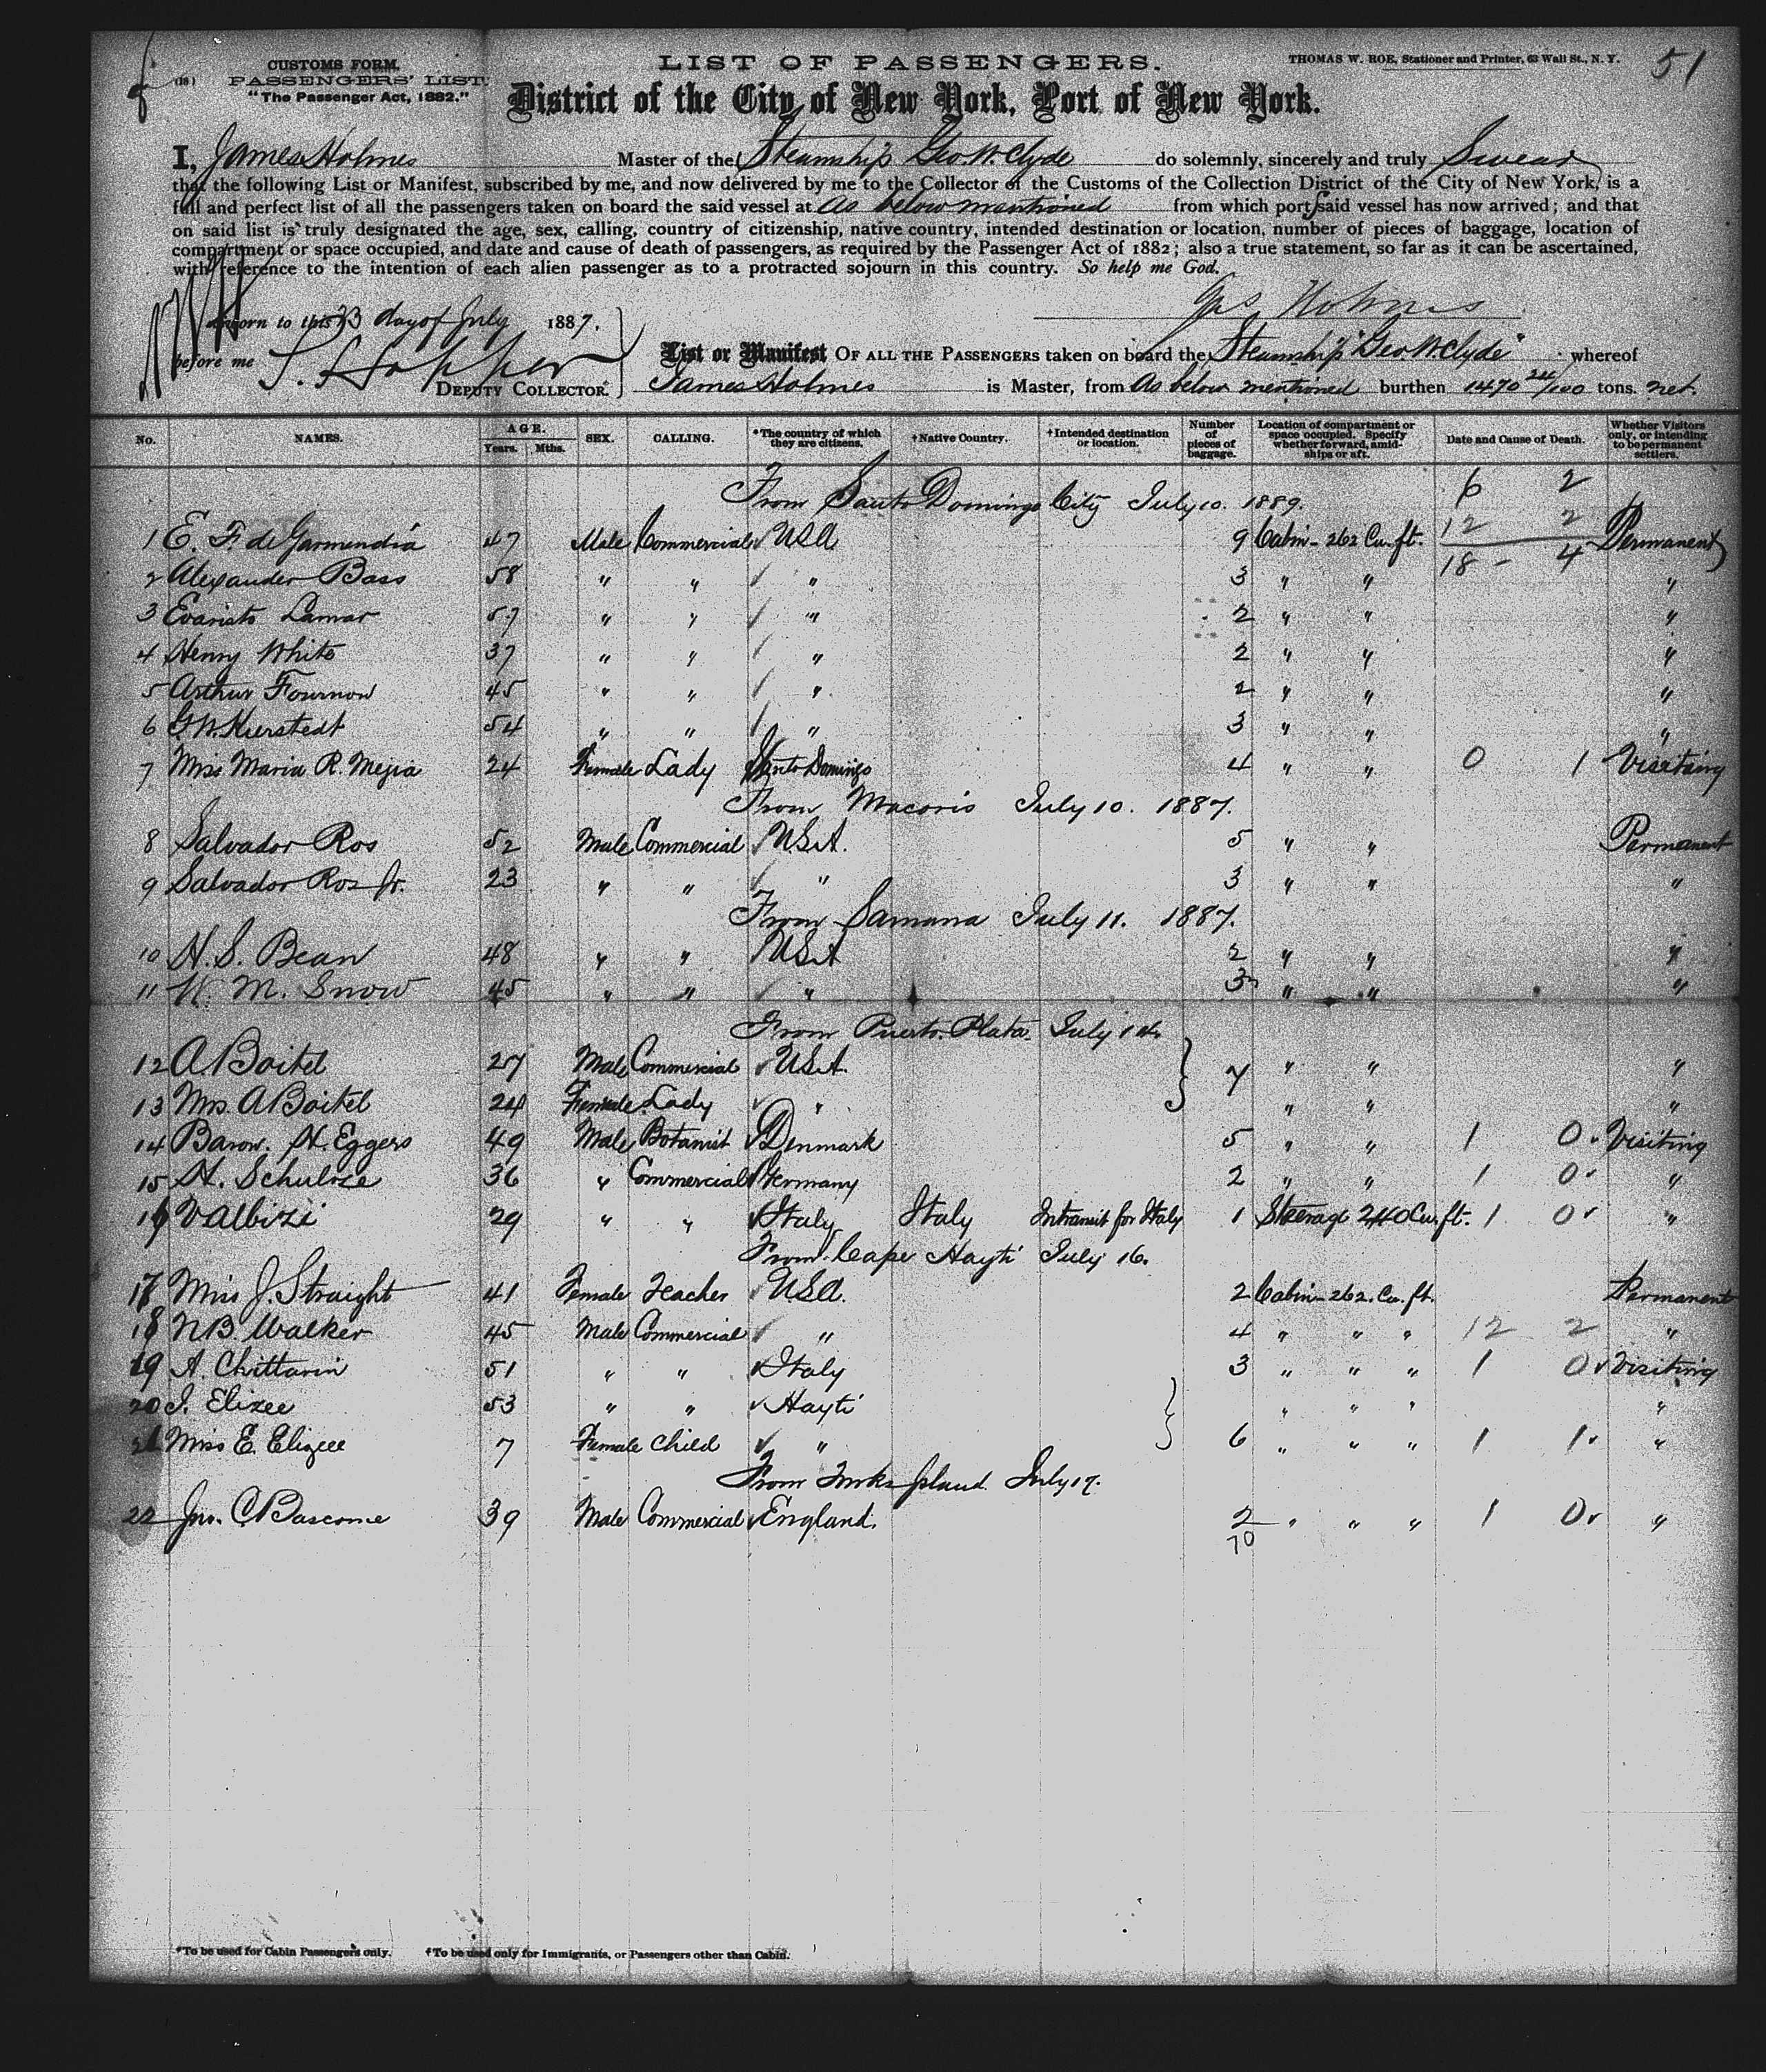 51
CUSTOMS FORM.
(18) PASSENGERS' LIST.
"The Passenger Act, 1882."
LIST OF PASSENGERS.
THOMAS W. ROE, Stationer and Printer, 63 Wall St., N. Y.
District of the City of New York, Port of New York.
I, James Holmes Master of the Steamship Geo. W. Clyde do solemnly, sincerely and truly Swear
that the following List or Manifest, subscribed by me, and now delivered by me to the Collector of the Customs of the Collection District of the City of New York, is a
full and perfect list of all the passengers taken on board the said vessel at As below mentioned from which port said vessel has now arrived; and that
on said list is truly designated the age, sex, calling, country of citizenship, native country, intended destination or location, number of pieces of baggage, location of
compartment or space occupied, and date and cause of death of passengers, as required by the Passenger Act of 1882; also a true statement, so far as it can be ascertained,
with reference to the intention of each alien passenger as to a protracted sojourn in this country. So help me God.
Jas Holmes
Sworn to this 23 day of July 1887.
before me S. Hopper
DEPUTY COLLECTOR.
List or Manifest OF ALL THE PASSENGERS taken on board the Steamship "Geo. W. Clyde" whereof
James Holmes is Master, from As below mentioned burthen 1470 24/100 tons. net.
No. NAMES. AGE. Years. Mths. SEX. CALLING. *The country of which they are citizens. †Native Country. †Intended destination or location. Number of pieces of baggage. Location of compartment or space occupied. Specify whether forward, amidships or aft. Date and Cause of Death. Whether Visitors only, or intending to be permanent settlers.
From Santo Domingo City July 10. 1889. 6 2
1 E. F. de Garmendia 47 Male Commercial USA 9 Cabin - 262 Cu. ft. 12 2 Permanent
18 - 4
2 Alexander Bass 58 " " " 3 " " "
3 Evaristo Lamar 57 " " " 2 " " "
4 Henry White 37 " " " 2 " " "
5 Arthur Fournow 45 " " " 2 " " "
6 G. W. Kierstedt 54 " " " 3 " " "
7 Miss Maria R. Mejia 24 Female Lady Santo Domingo 4 " " 0 1 Visitaing
From Macoris July 10. 1887.
8 Salvador Ros 52 Male Commercial U.S.A. 5 " " Permanent
9 Salvador Ros Jr. 23 " " " 3 " " "
From Samana July 11. 1887.
10 H. S. Bean 48 " " USA 2 " " "
11 W. M. Snow 45 " " " 3 " " "
From Puerto Plata July 14.
12 A Boitel 27 Male Commercial U.S.A. 7 " " "
13 Mrs. A Boitel 24 Female Lady " " " "
14 Baron. H. Eggers 49 Male Botanist Denmark 5 " " 1 0 Visiting
15 H. Schulze 36 " Commercial Germany 2 " " 1 0 "
16 V Albizi 29 " " Italy Italy Intransit for Italy 1 Steerage 2440 Cu. ft. 1 0 "
From Cape Hayti July 16.
17 Miss J. Straight 41 Female Teacher U.S.A. 2 Cabin - 262. Cu. ft. Permanent
18 N B. Walker 45 Male Commercial " 4 " " " 12 2 "
19 A. Chittarin 51 " " Italy 3 " " " 1 0 Visiting
20 I. Elizee 53 " " Hayti " " " "
21 Miss E. Elizee 7 Female Child " 6 " " " 1 1 "
From Turks Island July 17.
22 Jno. C. Bascome 39 Male Commercial England. 2 " " " 1 0 "
70
*To be used for Cabin Passengers only. †To be used only for Immigrants, or Passengers other than Cabin.